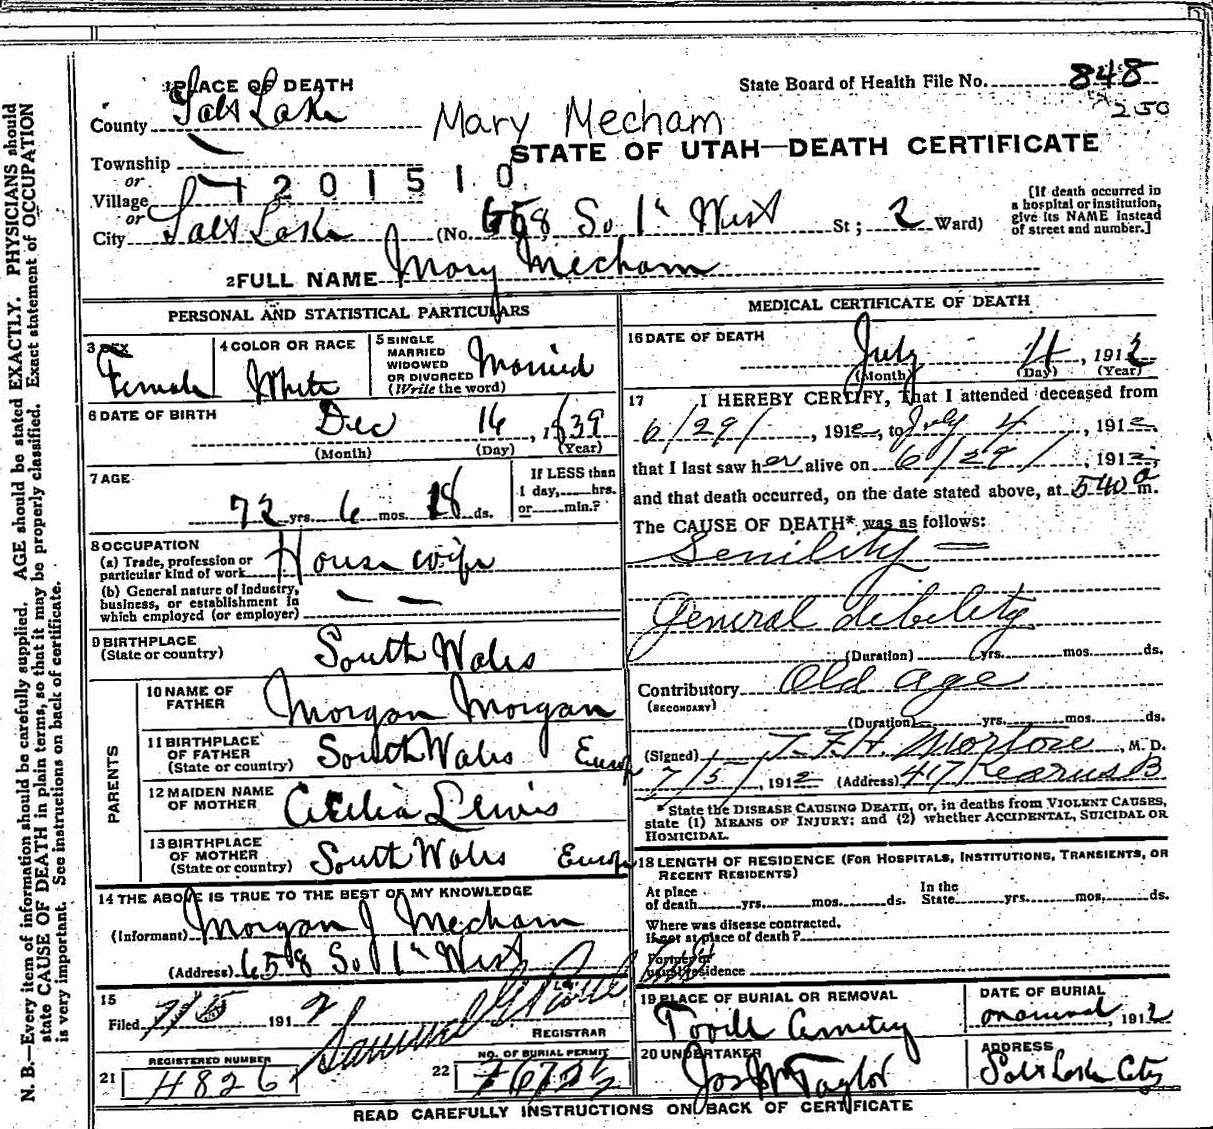 1 PLACE OF DEATH
State Board of Health File No. 848
250
County Salt Lake
Mary Mecham
STATE OF UTAH—DEATH CERTIFICATE
Township
or
Village
1201510
or
City Salt Lake (No. 658 So 1st West St; 2 Ward)
[If death occurred in a hospital or institution, give its NAME instead of street and number.]
2 FULL NAME Mary Mecham
PERSONAL AND STATISTICAL PARTICULARS
3 SEX Female
4 COLOR OR RACE White
5 SINGLE MARRIED WIDOWED OR DIVORCED (Write the word) Married
6 DATE OF BIRTH Dec 16, 1839
(Month) (Day) (Year)
7 AGE 72 yrs. 6 mos. 18 ds.
If LESS than 1 day,......hrs. or......min.?
8 OCCUPATION
(a) Trade, profession or particular kind of work House wife
(b) General nature of industry, business, or establishment in which employed (or employer) — —
9 BIRTHPLACE (State or country) South Wales
PARENTS
10 NAME OF FATHER Morgan Morgan
11 BIRTHPLACE OF FATHER (State or country) South Wales Europ
12 MAIDEN NAME OF MOTHER Cecilia Lewis
13 BIRTHPLACE OF MOTHER (State or country) South Wales Europ
14 THE ABOVE IS TRUE TO THE BEST OF MY KNOWLEDGE
(Informant) Morgan J Mecham
(Address) 658 So 1st West
15
Filed 7/5 1912
REGISTRAR
21 REGISTERED NUMBER 4826
22 NO. OF BURIAL PERMIT
MEDICAL CERTIFICATE OF DEATH
16 DATE OF DEATH July 4, 1912
(Month) (Day) (Year)
17 I HEREBY CERTIFY, That I attended deceased from
6/29/, 1912, to July 4, 1912,
that I last saw her alive on 6/29/, 1912,
and that death occurred, on the date stated above, at 540 a m.
The CAUSE OF DEATH* was as follows:
Senility —
General debility
(Duration) yrs. mos. ds.
Contributory Old age
(SECONDARY)
(Duration) yrs. mos. ds.
(Signed) T. F. H. Morton, M. D.
7/5/, 1912 (Address) 417 Kearns B
* State the DISEASE CAUSING DEATH, or, in deaths from VIOLENT CAUSES, state (1) MEANS OF INJURY; and (2) whether ACCIDENTAL, SUICIDAL OR HOMICIDAL.
18 LENGTH OF RESIDENCE (FOR HOSPITALS, INSTITUTIONS, TRANSIENTS, OR RECENT RESIDENTS)
At place of death yrs. mos. ds. In the State yrs. mos. ds.
Where was disease contracted, if not at place of death?
Former or usual residence
19 PLACE OF BURIAL OR REMOVAL
DATE OF BURIAL
Cemetery
1912
20 UNDERTAKER Jos Wm Taylor
ADDRESS Salt Lake City
READ CAREFULLY INSTRUCTIONS ON BACK OF CERTIFICATE
N. B.—Every item of information should be carefully supplied. AGE should be stated EXACTLY. PHYSICIANS should
state CAUSE OF DEATH in plain terms, so that it may be properly classified. Exact statement of OCCUPATION
is very important. See instructions on back of certificate.